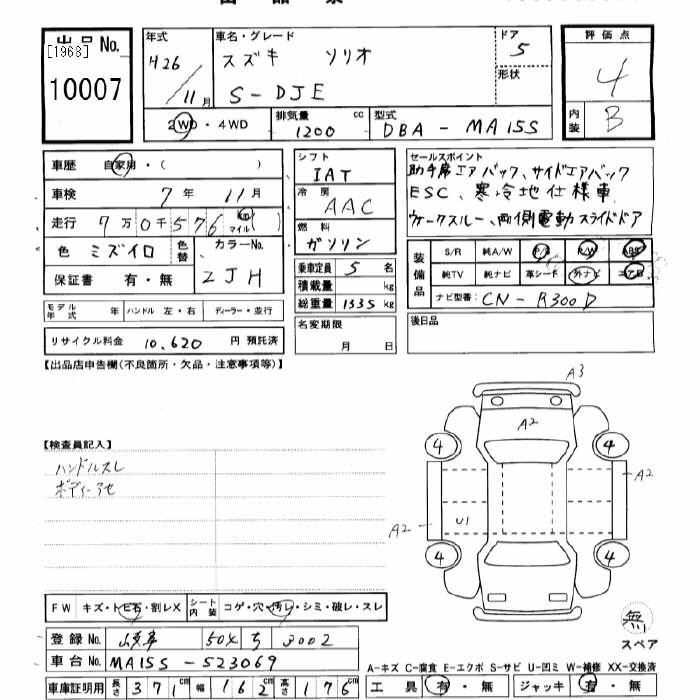 出品No.
[1968]
10007
年式
H26
11月
車名・グレード
スズキ ソリオ
S-DJE
ドア
5
形状
評価点
4
内装
B
2WD・4WD
排気量
1200 cc
型式
DBA-MA15S
車歴 自家用・( )
車検 7年 11月
走行 7万0千576 km マイル ( )
色 ミズイロ
色替
カラーNo.
ZJH
保証書 有・無
シフト
IAT
冷房
AAC
燃料
ガソリン
乗車定員 5名
積載量 kg
総重量 1335 kg
セールスポイント
助手席エアバック、サイドエアバック
ESC、寒冷地仕様車
ウォークスルー、両側電動スライドドア
装備品
S/R 純A/W P/S R/W ABS
純TV 純ナビ 革シート 外ナビ エアB
ナビ型番: CN-R300D
モデル年式 年 ハンドル 左・右 ディーラー・並行
リサイクル料金 10,620円 預託済
名変期限
月 日
後日品
【出品店申告欄(不良箇所・欠品・注意事項等)】
【検査員記入】
ハンドルスレ
ボディーアセ
A3
A2
4
4
A2
A2
U1
4
4
無
スペア
FW キズ・トビ石・割レX シート内装 コゲ・穴・汚レ・シミ・破レ・スレ
登録No. 504 ち 3002
車台No. MA15S-523069
車庫証明用 長さ 371cm 幅 162cm 高さ 176cm
A-キズ C-腐食 E-エクボ S-サビ U-凹ミ W-補修 XX-交換済
工具 有・無 ジャッキ 有・無